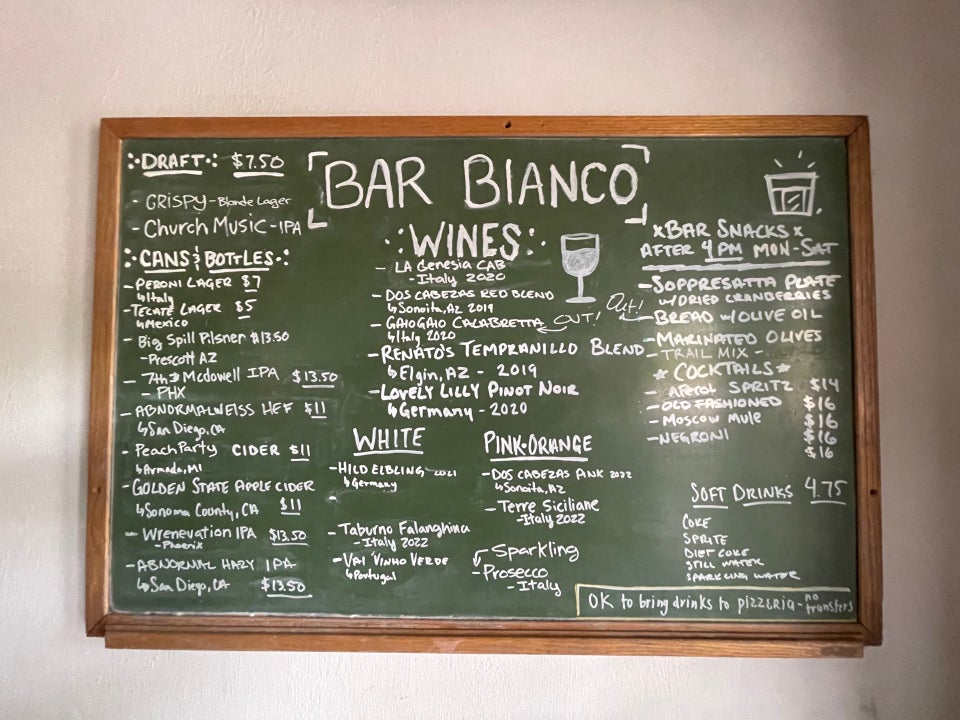 DRAFT $7.50
- CRISPY - Blonde Lager
- Church Music - IPA
CANS & BOTTLES
- PERONI LAGER $7
↳Italy
- TECATE LAGER $5
↳Mexico
- Big Spill Pilsner $13.50
- Prescott AZ
- 7th & McDowell IPA $13.50
- PHX
- ABNORMALWEISS HEF $11
↳San Diego, CA
- Peach Party CIDER $11
↳Armada, MI
- GOLDEN STATE APPLE CIDER
↳Sonoma County, CA $11
- Wrenevation IPA $13.50
- Phoenix
- ABNORMAL HAZY IPA
↳San Diego, CA $13.50
BAR BIANCO
WINES
- LA Genesia CAB
- Italy 2020
- DOS CABEZAS RED BLEND
↳Sonoita, AZ 2019
- GAIOGAIO CALABRETTA OUT!
↳Italy 2020
- RENATO'S TEMPRANILLO BLEND
↳Elgin, AZ - 2019
- LOVELY LILLY PINOT NOIR
↳Germany - 2020
WHITE
- HILD ELBLING 2021
↳Germany
- Taburno Falanghina
- Italy 2022
- VAI VINHO VERDE
↳Portugal
PINK-ORANGE
- DOS CABEZAS PINK 2022
↳Sonoita, AZ
- Terre Siciliane
- Italy 2022
Sparkling
- Prosecco
- Italy
x BAR SNACKS x
AFTER 4PM MON-SAT
- SOPPRESATTA PLATE
W/DRIED CRANBERRIES
Out! - BREAD W/OLIVE OIL
- MARINATED OLIVES
- TRAIL MIX -
COCKTAILS
- APEROL SPRITZ $14
- OLD FASHIONED $16
- MOSCOW MULE $16
- NEGRONI $16
$16
SOFT DRINKS 4.75
COKE
SPRITE
DIET COKE
STILL WATER
SPARKLING WATER
OK to bring drinks to pizzeria - no transfers